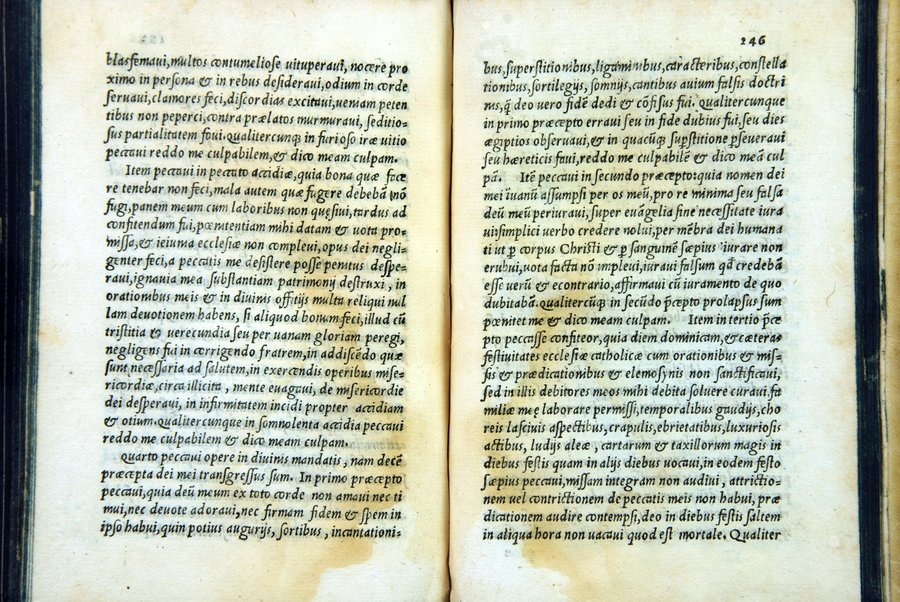 blasfemaui, multos contumeliose uituperaui, nocere pro
ximo in persona & in rebus desideraui, odium in corde
seruaui, clamores feci, discordias excitaui, ueniam peten
tibus non peperci, contra prælatos murmuraui, seditio-
sus partialitatem foui. qualitercunq; in furioso iræ uitio
peccaui reddo me culpabilem, & dico meam culpam.
Item peccaui in peccato accidiæ, quia bona quæ face
re tenebar non feci, mala autem quæ fugere debebã nõ
fugi, panem meum cum laboribus non quesiui, tardus ad
confitendum fui, pœnitentiam mihi datam & uota pro-
missa, & ieiunia ecclesiæ non compleui, opus dei negli-
genter feci, a peccatis me desistere posse penitus despe-
raui, ignauia mea substantiam patrimonij destruxi, in
orationibus meis & in diuinis offitijs multa reliqui nul
lam deuotionem habens, si aliquod bonum feci, illud cũ
tristitia & uerecundia seu per uanam gloriam peregi,
negligens fui in corrigendo fratrem, in addiscẽdo quæ
sunt necessaria ad salutem, in exercendis operibus mise-
ricordiæ, circa illicita, mente euagaui, de misericordie
dei desperaui, in infirmitatem incidi propter accidiam
& otium. qualitercunque in somnolenta accidia peccaui
reddo me culpabilem & dico meam culpam.
Quarto peccaui opere in diuinis mandatis, nam decẽ
præcepta dei mei transgressus sum. In primo præcepto
peccaui, quia deũ meum ex toto corde non amaui nec ti
mui, nec deuote adoraui, nec firmam fidem & spem in
ipso habui, quin potius augurijs, sortibus, incantationi-
246
bus, superstitionibus, ligaminibus, caracteribus, constella
tionibus, sortilegijs, somnijs, cantibus auium falsis doctri
nis, q̃ deo uero fidẽ dedi & cõfisus fui. Qualitercunque
in primo præcepto erraui seu in fide dubius fui, seu dies
ægiptios obseruaui, & in quacũq; supstitione pseueraui
seu hæreticis faui, reddo me culpabilẽ & dico meã cul
pã. Itẽ peccaui in secundo præcepto: quia nomen dei
mei ĩuanũ assumpsi per os meũ, pro re minima seu falsa
deũ meũ periuraui, super euãgelia sine necessitate iura
ui, simplici uerbo credere nolui, per mẽbra dei humana
ti ut p̱ corpus Christi & p̱ sanguinẽ sæpius iurare non
erubui, uota facta nõ impleui, iuraui falsum qđ credebã
esse uerũ & econtrario, affirmaui cũ iuramento de quo
dubitabã. Qualitercũq; in secũdo p̃cepto prolapsus sum
pœnitet me & dico meam culpam. Item in tertio p̃ce
pto peccasse confiteor, quia diem dominicam, & cæteras
festiuitates ecclesiæ catholicæ cum orationibus & mis-
sis & prædicationibus & elemosynis non sanctificaui,
sed in illis debitores meos mihi debita soluere curaui. fa
miliæ meę laborare permissi, temporalibus gaudijs, cho
reis lasciuis aspectibus, crapulis, ebrietatibus, luxuriosis
actibus, ludijs aleæ, cartarum & taxillorum magis in
diebus festis quam in alijs diebus uocaui, in eodem festo
sæpius peccaui, missam integram non audiui, attrictio-
nem uel contrictionem de peccatis meis non habui, præ
dicationem audire contempsi, deo in diebus festis saltem
in aliqua hora non uacaui quod est mortale. Qualiter